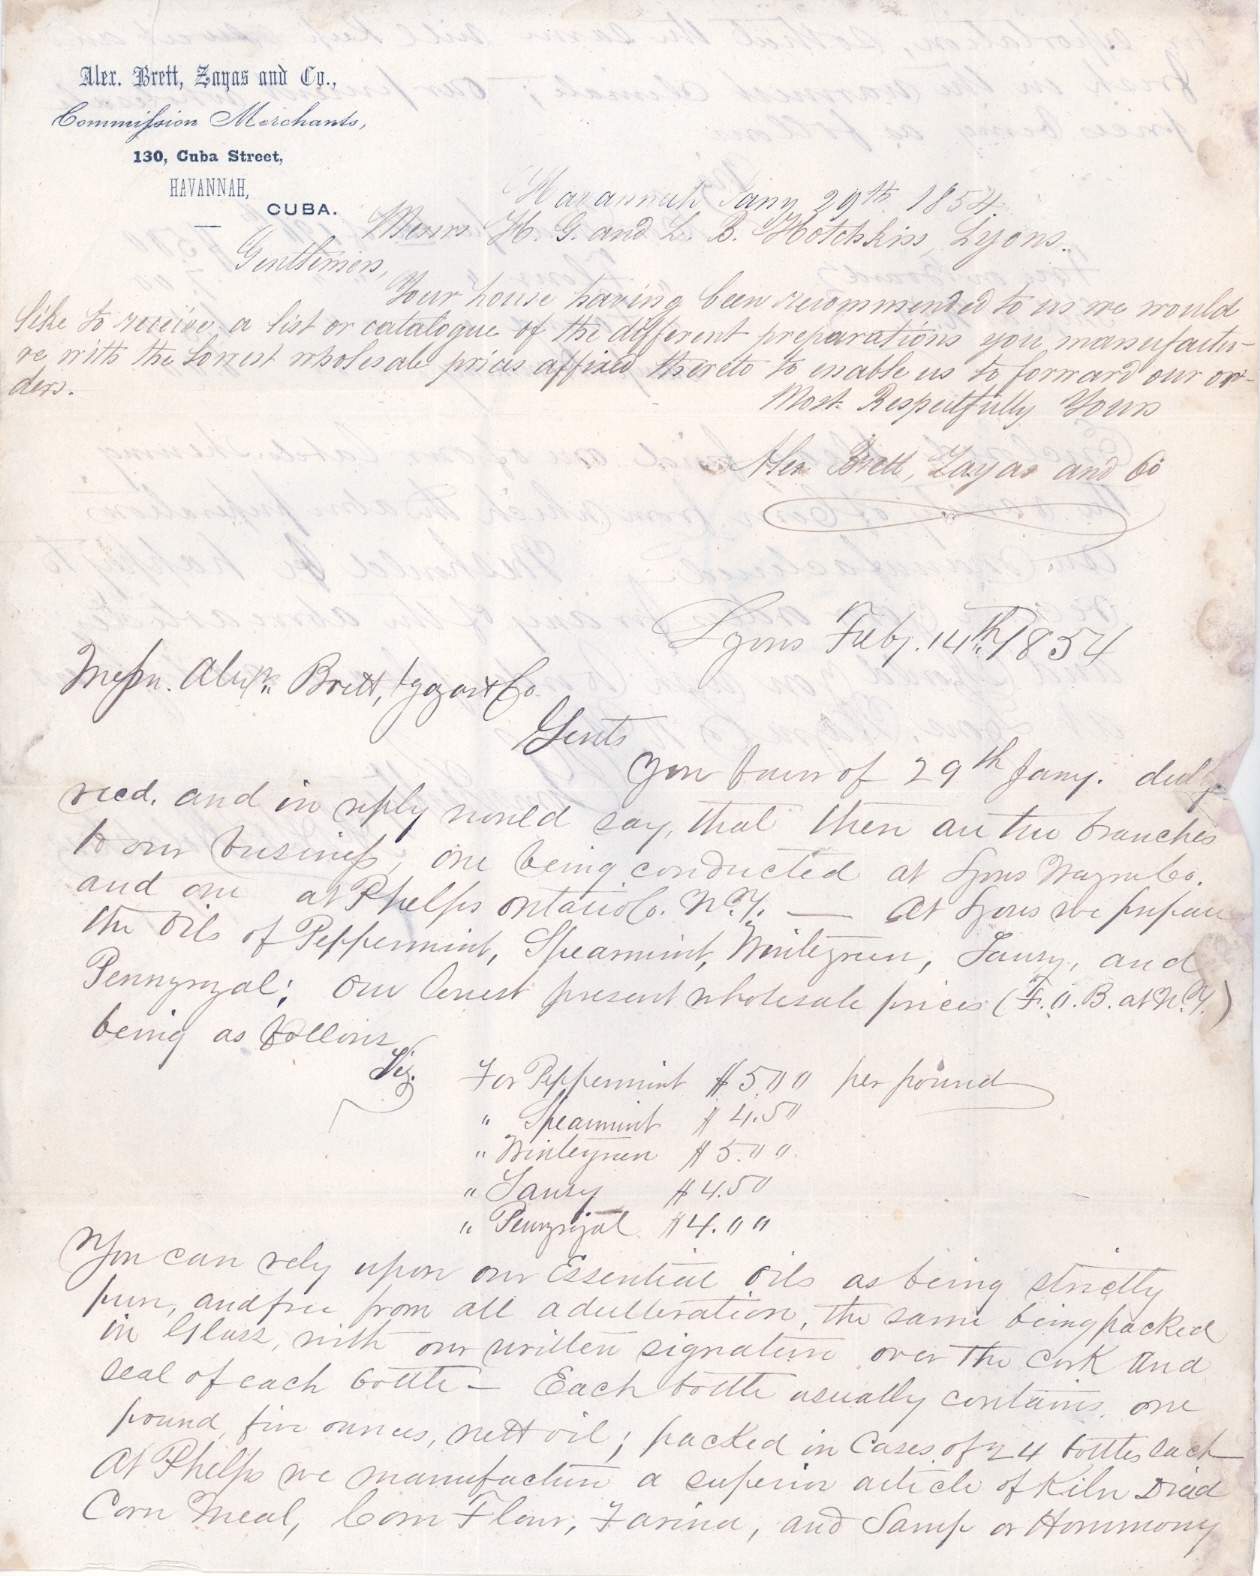 Alex. Brett, Zayas and Co.,
Commission Merchants,
130, Cuba Street,
HAVANNAH,
CUBA.
Havannah Jany 29th 1854.
Messrs H. G. and L. B. Hotchkiss, Lyons.
Gentlemen,
Your house having been recommended to us we would
like to receive a list or catalogue of the different preparations you manufactu-
re with the lowest wholesale prices affixed thereto to enable us to forward our or-
ders.
Most Respectfully Yours
Alex. Brett, Zayas and Co
Lyons Feby. 14th 1854
Messrs. Alexr. Brett, Zayas & Co.
Gents
Your favor of 29th Jany. duly
recd. and in reply would say, that there are two branches
to our business, one being conducted at Lyons Wayne Co.
and one at Phelps Ontario Co. N.Y. — At Lyons we prepare
the Oils of Peppermint, Spearmint, Wintergreen, Tansy, and
Pennyroyal; Our lowest present wholesale prices (F.O.B. at N.Y.)
being as follows
Viz. For Peppermint $5.00 per pound
" Spearmint $4.50
" Wintergreen $5.00.
" Tansy $4.50
" Pennyroyal $4.00
You can rely upon our Essential Oils as being strictly
pure, and free from all adulteration, the same being packed
in Glass, with our written signature over the cork and
seal of each bottle — Each bottle usually contains one
pound, five ounces, nett oil; packed in Cases of 24 bottles each
At Phelps we manufacture a superior article of Kiln Dried
Corn Meal, Corn Flour, Farina, and Samp or Hommony